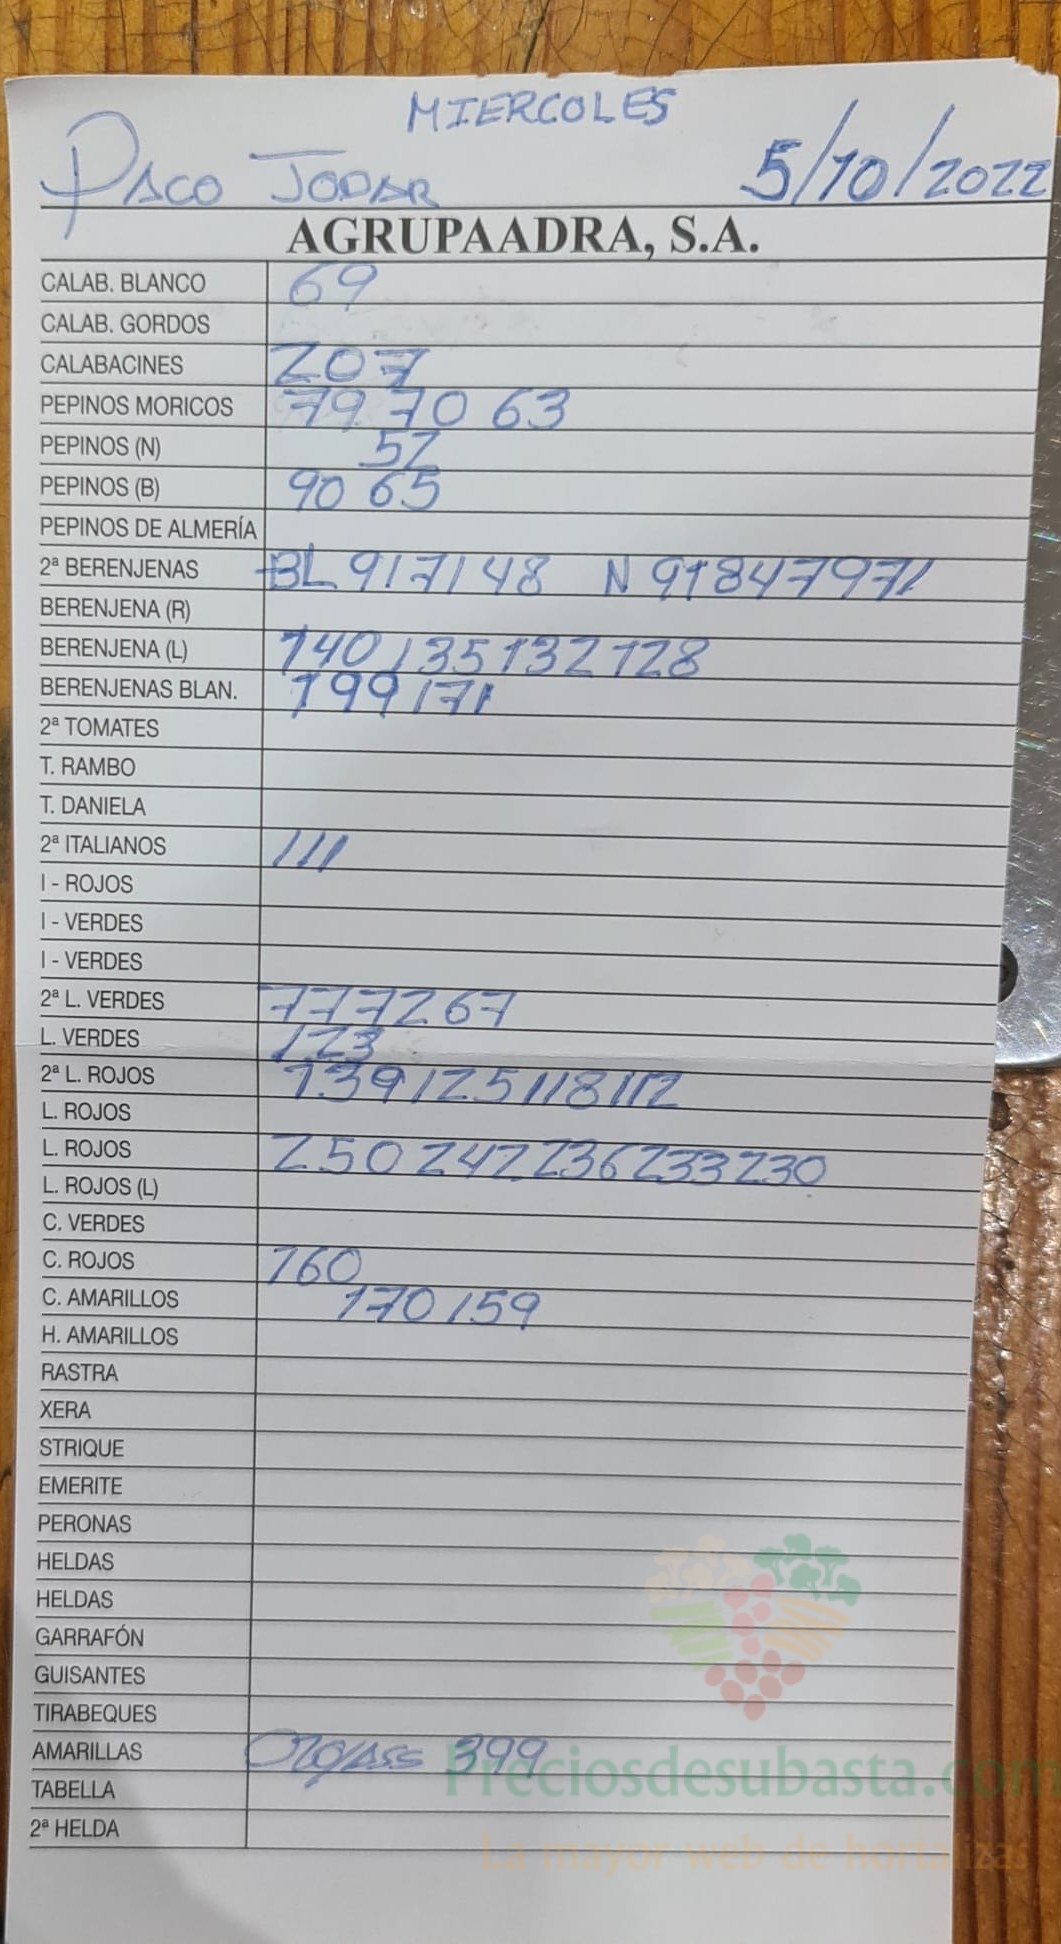 MIERCOLES
PACO JODAR 5/10/2022
AGRUPAADRA, S.A.
CALAB. BLANCO 69
CALAB. GORDOS
CALABACINES 207
PEPINOS MORICOS 79 70 63
PEPINOS (N) 52
PEPINOS (B) 90 65
PEPINOS DE ALMERÍA
2ª BERENJENAS BL 91 71 48 N 91 84 79 71
BERENJENA (R)
BERENJENA (L) 140 135 132 128
BERENJENAS BLAN. 199 171
2ª TOMATES
T. RAMBO
T. DANIELA
2ª ITALIANOS 111
I - ROJOS
I - VERDES
I - VERDES
2ª L. VERDES 77 72 67
L. VERDES 123
2ª L. ROJOS 139 125 118 112
L. ROJOS
L. ROJOS 250 242 236 233 230
L. ROJOS (L)
C. VERDES
C. ROJOS 160
C. AMARILLOS 170 159
H. AMARILLOS
RASTRA
XERA
STRIQUE
EMERITE
PERONAS
HELDAS
HELDAS
GARRAFÓN
GUISANTES
TIRABEQUES
AMARILLAS 399
TABELLA
2ª HELDA
Preciosdesubasta.com
La mayor web de hortalizas